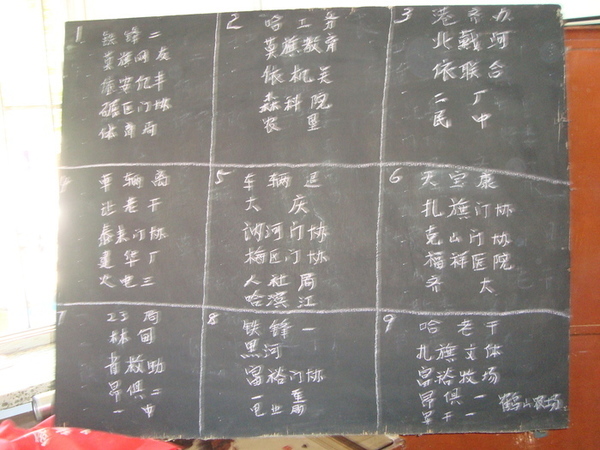 1
铁锋二
莫旗网友
依安亿丰
碾医门协
体育局
2
哈工务
莫旗教育
依机关
森科院
农垦
3
港市办
北戴河
依联合
二厂
民中
4
车辆南
进老干
泰来门协
建华厂
火电三
5
车辆进
大庆
讷河门协
梅医门协
人社局
哈滨江
6
天宝康
扎旗门协
克山门协
福祥医院
齐大
7
23局
林甸
省教助
昂俱二
一中
8
铁锋一
黑河
富裕门协
一重
电业局
9
哈老干
扎旗文体
富裕牧场
昂俱一
昂干一
鹤山农场